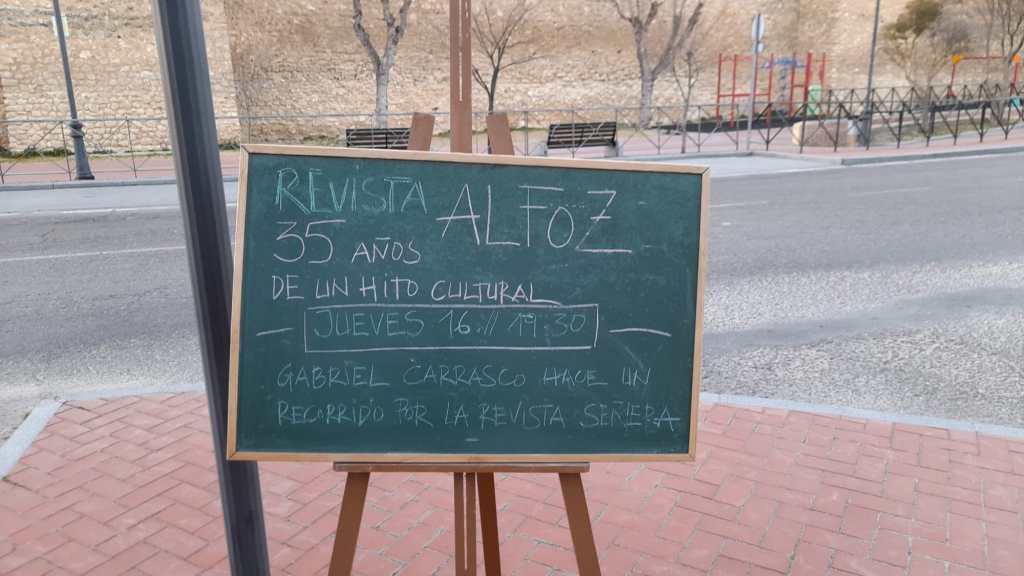 REVISTA ALFOZ
35 AÑOS
DE UN HITO CULTURAL
JUEVES 16 // 19:30
GABRIEL CARRASCO HACE UN
RECORRIDO POR LA REVISTA SEÑERA